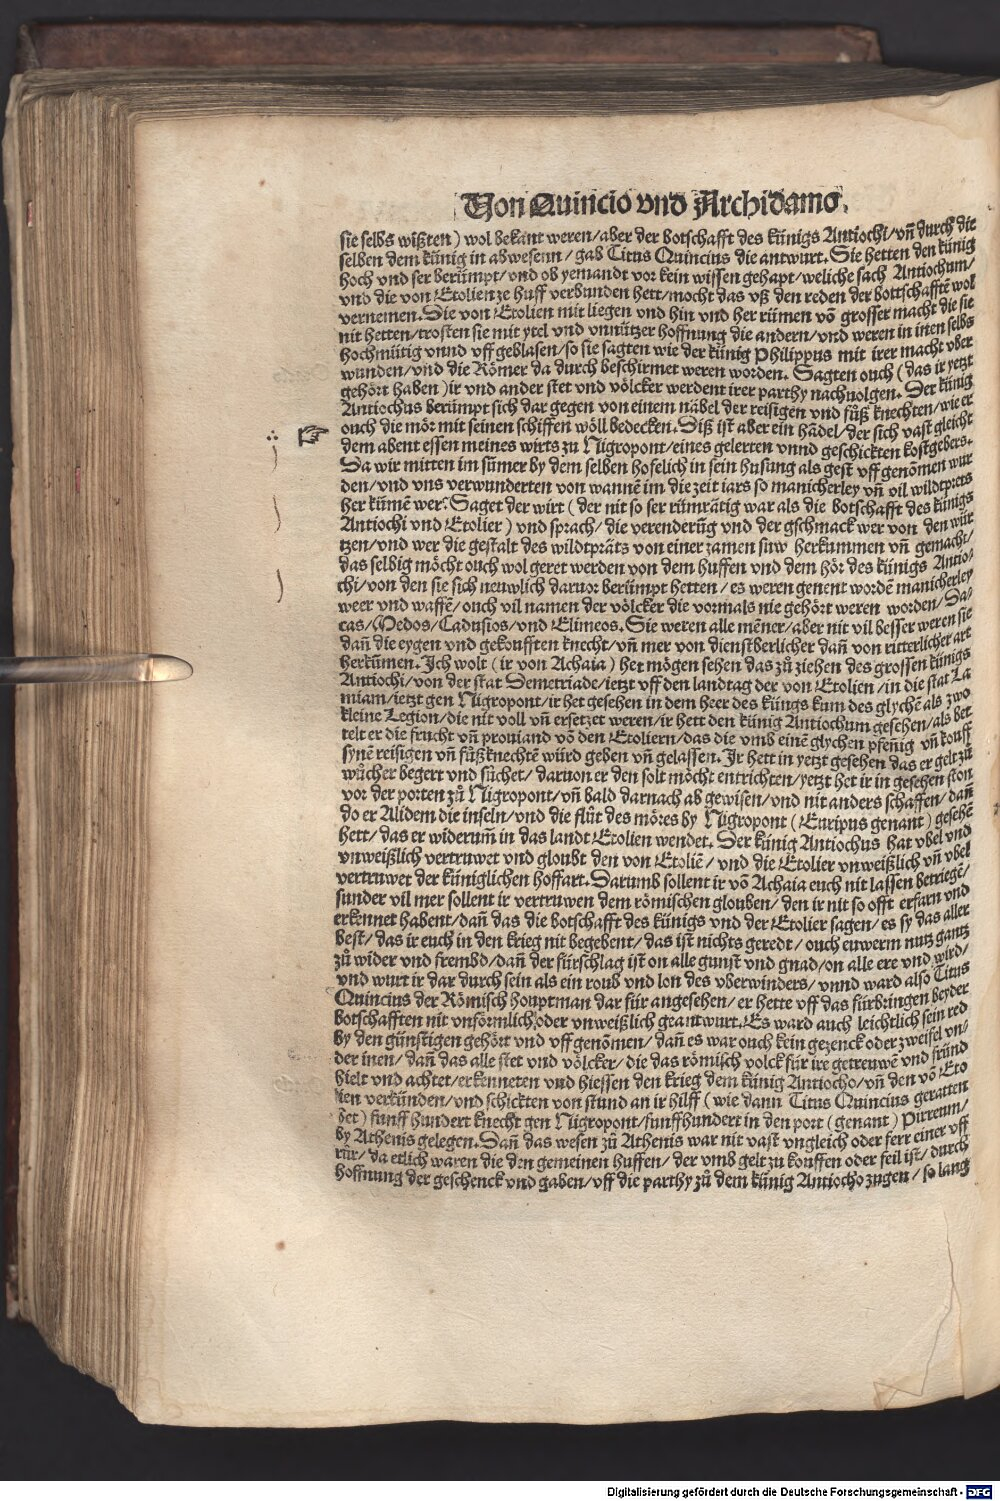 Von Quincio vnd Archidamo.
sie selbs wißten) wol bekant weren/aber der botschafft des künigs Antiochi/vñ durch die
selben dem künig in abwesenn/gab Titus Quincius die antwurt. Sie hetten den künig
hoch vnd ser berümpt/vnd ob yemandt vor kein wissen gehapt/weliche sach Antiochum/
vnd die von Etolien ze huff verbunden hett/mocht das vß den reden der bottschafftē wol
vernemen. Sie von Etolien mit liegen vnd hin vnd her rümen vō grosser macht die sie
nit hetten/trosten sie mit ytel vnd vnnützer hoffnung die andern/vnd weren in inen selbs
hochmütig vnnd vff geblasen/so sie sagten wie der künig Philippus mit irer macht vber
wunden/vnd die Römer da durch beschirmet weren worden. Sagten ouch (das ir yetzt
gehört haben) ir vnd ander stet vnd völcker werdent irer parthy nachuolgen. Der künig
Antiochus berümpt sich dar gegen von einem näbel der reisigen vnd fůß knechten/wie er
ouch die mör mit seinen schiffen wöll bedecken. Diß ist aber ein hādel/der sich vast gleicht
dem abent essen meines wirts zu Nigropont/eines gelerten vnnd geschickten kostgebers.
Da wir mitten im sumer by dem selben hofelich in sein husung als gest vff genōmen wur
den/vnd vns verwunderten von wannē im die zeit iars so manicherley vñ vil wildtprets
her kümē wer. Saget der wirt (der nit so ser rümrätig war als die botschafft des künigs
Antiochi vnd Etolier) vnd sprach/die verenderūg vnd der gschmack wer von den wür
tzen/vnd wer die gestalt des wildtpräts von einer zamen suw herkummen vñ gemacht/
das selbig möcht ouch wol geret werden von dem huffen vnd dem hör des künigs Antio-
chi/von den sie sich neuwlich daruor berümpt hetten/es weren genent wordē manicherley
weer vnd waffē/ouch vil namen der völcker die vormals nie gehört weren worden/Da-
cas/Medos/Cadusios/vnd Elimeos. Sie weren alle mēner/aber nit vil besser weren sie
dañ die eygen vnd gekoufften knecht/vñ mer von dienstberlicher dañ von ritterlicher art
herkümen. Ich wolt (ir von Achaia) het mögen sehen das zů ziehen des grossen künigs
Antiochi/von der stat Demetriade/ietzt vff den landtag der von Etolien/in die stat La
miam/ietzt gen Nigropont/ir het gesehen in dem heer des künigs kum des glychē als zwo
kleine Legion/die nit voll vñ ersetzet weren/ir hett den künig Antiochum gesehen/als bet
telt er die frucht vñ prouiand vō den Etoliern/das die vmb einē glychen pfenig vñ kouff
synē reisigen vñ fůßknechtē würd geben vñ gelassen. Ir hett in yetzt gesehen das er gelt zů
wůcher begert vnd sůchet/daruon er den solt möcht entrichten/yetzt het ir in gesehen ston
vor der porten zů Nigropont/vñ bald darnach ab gewisen/vnd nit anders schaffen/dañ
do er Alidem die inseln/vnd die flůt des möres by Nigropont (Euripus genant) gesehē
hett/das er widerum̄ in das landt Etolien wendet. Der künig Antiochus hat vbel vnd
vnweißlich vertruwet vnd gloubt den von Etoliē/vnd die Etolier vnweißlich vñ vbel
vertruwet der küniglichen hoffart. Darumb sollent ir vō Achaia euch nit lassen betriegē/
sunder vil mer sollent ir vertruwen dem römischen glouben/den ir nit so offt erfarn vnd
erkennet habent/dañ das die botschafft des künigs vnd der Etolier sagen/es sy das aller
best/das ir euch in den krieg nit begebent/das ist nichts geredt/ouch euwerm nutz gantz
zů wider vnd frembd/dañ der fürschlag ist on alle gunst vnd gnad/on alle ere vnd wird/
vnd wurt ir dar durch sein als ein roub vnd lon des vberwinders/vnnd ward also Titus
Quincius der Römisch houptman dar für angesehen/er hette vff das fürbringen beyder
botschafften nit vnförmlich/oder vnweißlich geantwurt. Es ward auch leichtlich sein red
by den günstigen gehört vnd vff genōmen/dañ es war ouch kein gezenck oder zweifel vn-
der inen/dañ das alle stet vnd völcker/die das römisch volck für ire getreuwē vnd fründ
hielt vnd achtet/erkenneten vnd hiessen den krieg dem künig Antiocho/vñ den vō Eto
lien verkünden/vnd schickten von stund an ir hilff (wie dann Titus Quincius geratten
het) funff hundert knecht gen Nigropont/funffhundert in den port (genant) Pirreum/
by Athenis gelegen. Dañ das wesen zů Athenis war nit vast vngleich oder ferr einer vff
růr/da etlich waren die den gemeinen huffen/der vmb gelt zu kouffen oder feil ist/durch
hoffnung der geschenck vnd gaben/vff die parthy zů dem künig Antiocho zugen/so lang
Digitalisierung gefördert durch die Deutsche Forschungsgemeinschaft - DFG